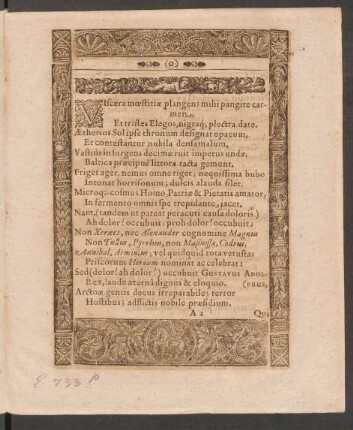 (o)
Viscera mœstitiæ plangens mihi pangite car-
men,
Et tristes Elegos, nigraq; plectra date.
Æthonius Sol ipse thronum designat opacum,
Et contestantur nubila densa malum,
Vastius insurgens decimæ ruit impetus undæ,
Baltica præcipuè littora tacta gemunt.
Friget ager, nemus omne riget; nequissima bubo
Intonat horrisonum; dulcis alauda silet.
Microqí-cosmus Homo, Patriæ & Pietatis amator,
In fermento omni spe trepidante, jacet.
Nam, (tandem ut pateat peracuti causa doloris)
Ah dolor! occubuit: proh dolor! occubuit:
Non Xerxes, nec Alexander cognomine Magnus
Non Tullus, Pyrrhus, non Masinissa, Codrus,
Annibal, Arminius; vel quidquod tota vetustas
Priscorum Heroum nominat ac celebrat:
Sed (dolor! ah dolor!) occubuit GUSTAVUS ADOL-
Rex, laude æternâ dignus & eloquio. (PHUS,
Arctoæ gentis decus irreparabile; terror
Hostibus; adflictis nobile præsidium.
A 2 Qui
E 733 P